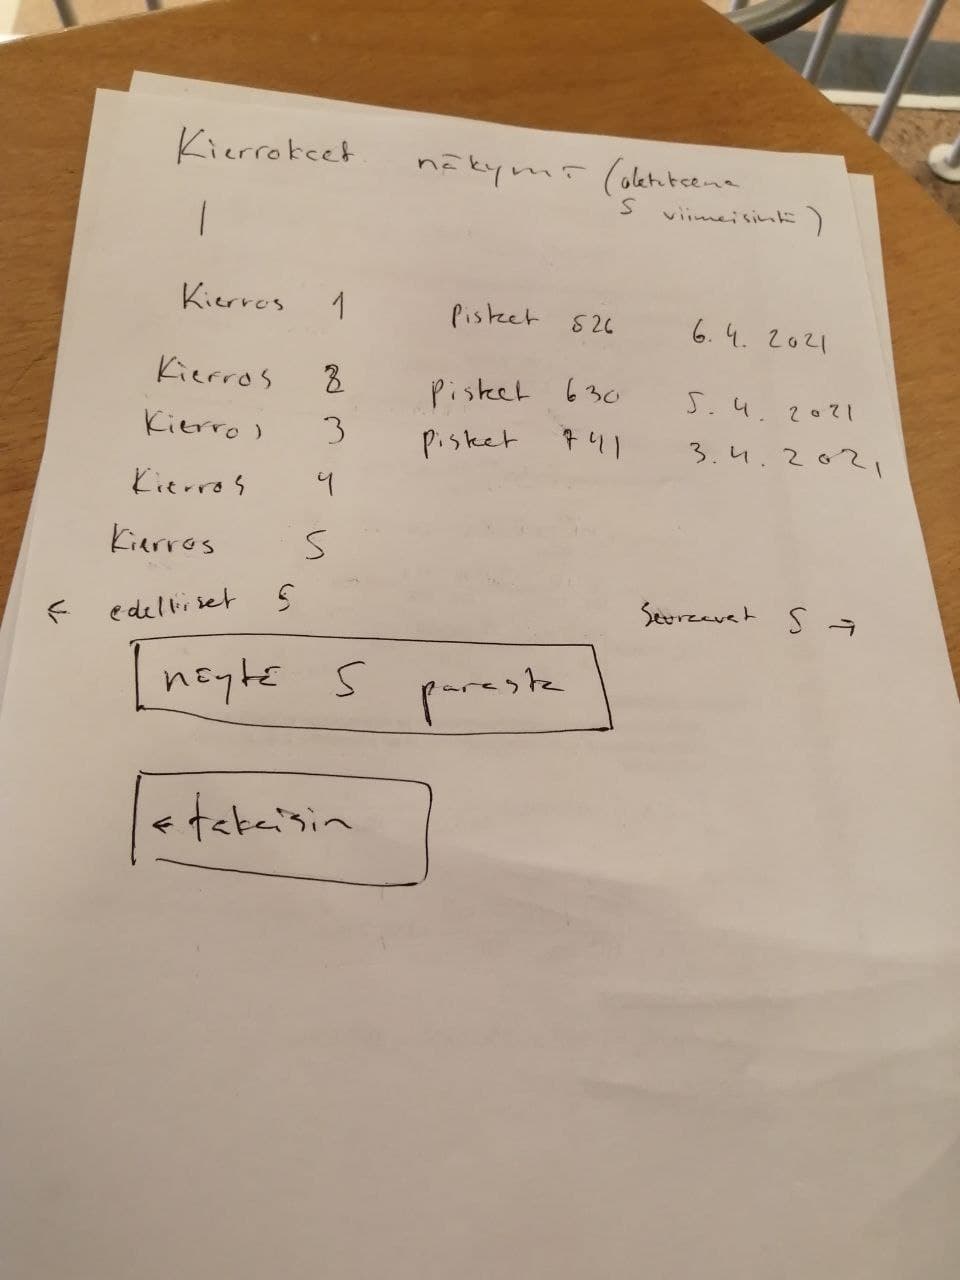 Kierrokset näkymä (oletuksena
5 viimeisintä)
Kierros 1 Pisteet 526 6.4.2021
Kierros 2 Pisteet 630 5.4.2021
Kierros 3 Pisteet 741 3.4.2021
Kierros 4
Kierros 5
← edelliset 5 Seuraavat 5 →
näytä 5 parasta
← takaisin